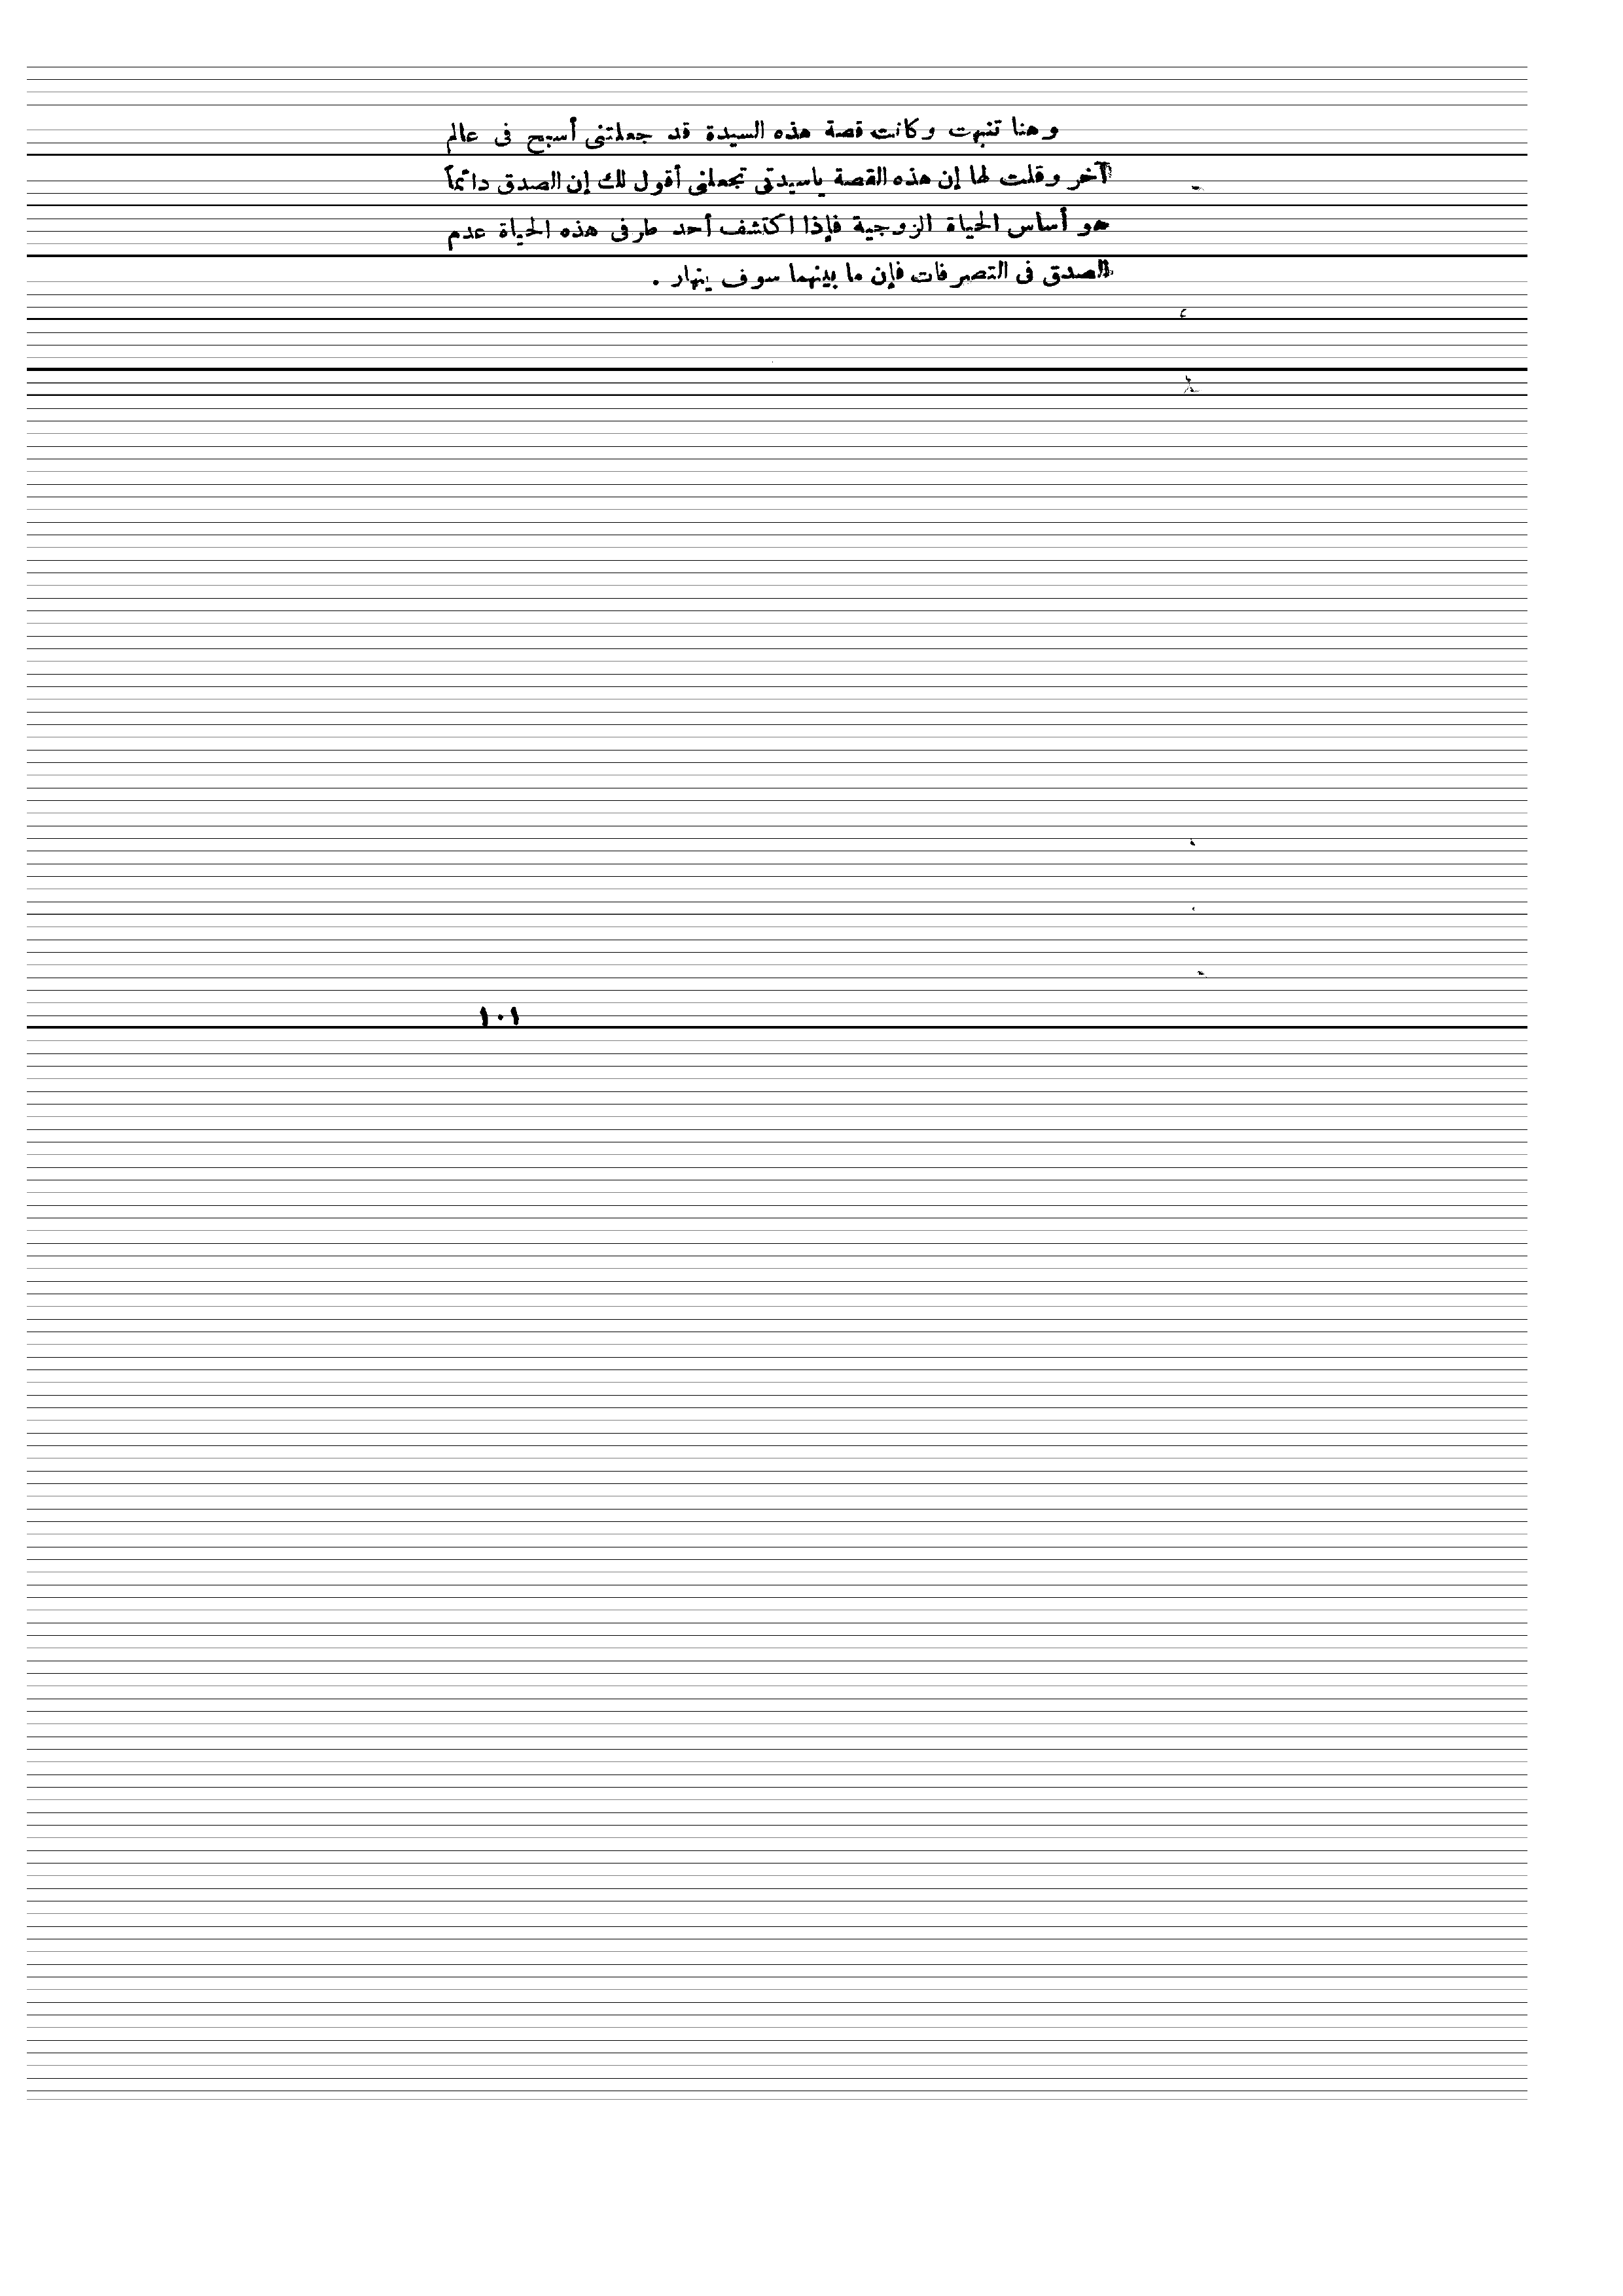 وهنا تنبهت وكانت قصة هذه السيدة قد جعلتنى أسبح فى عالم
آخر وقلت لها إن هذه القصة ياسيدتى تجعلنى أقول لك إن الصدق دائماً
هو أساس الحياة الزوجية فإذا اكتشف أحد طرفى هذه الحياة عدم
الصدق فى التصرفات فإن ما بينهما سوف ينهار .
١٠١